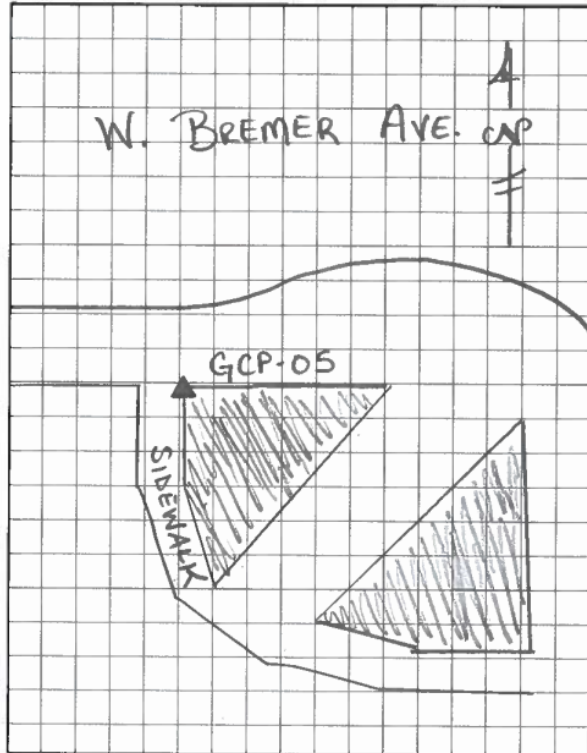 W. BREMER AVE.
GCP-05
SIDEWALK